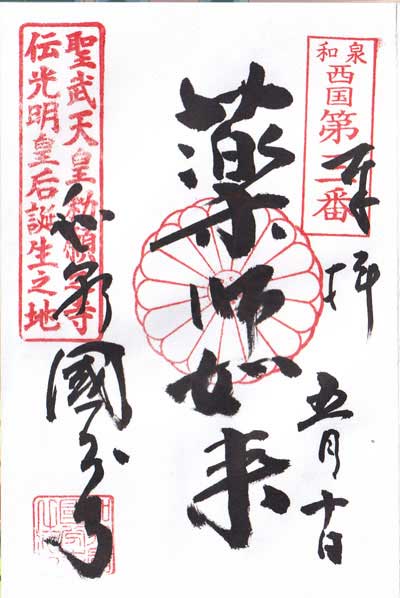 和泉
西国第二番
奉拝
五月十日
薬師如来
聖武天皇勅願寺
伝光明皇后誕生之地
國分寺